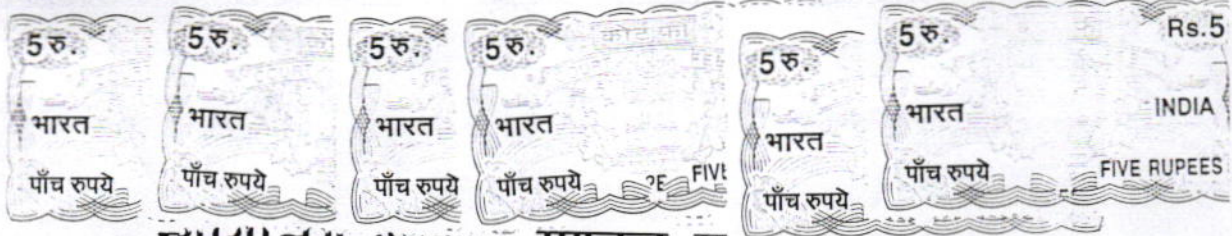 5 रु.
भारत
पाँच रुपये
5 रु.
भारत
पाँच रुपये
5 रु.
भारत
पाँच रुपये
5 रु.
कोर्ट फी
भारत
पाँच रुपये
FIVE
5 रु.
भारत
पाँच रुपये
5 रु. Rs.5
भारत INDIA
पाँच रुपये FIVE RUPEES